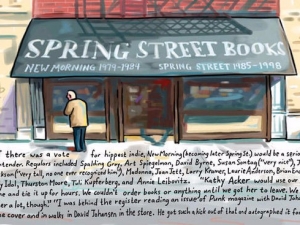 SPRING STREET BOOKS
NEW MORNING 1979-1984 SPRING STREET 1985-1998
there was a vote for hippest indie, New Morning (becoming later Spring St.) would be a serious
contender. Regulars included Spalding Gray, Art Spiegelman, David Byrne, Susan Sontag ("very nice"),
("Very tall, no one ever recognized him"), Madonna, Joan Jett, Larry Kramer, Laurie Anderson, Brian Eno
Idol, Thurston Moore, Tuli Kupferberg, and Annie Leibovitz. "Kathy Acker would use our
and tie it up for hours. We couldn't order books or anything until we got her to leave. We
her a lot, though." "I was behind the register reading an issue of Punk magazine with David
cover and in walks David Johansen in the store. He got such a kick out of that and autographed it for